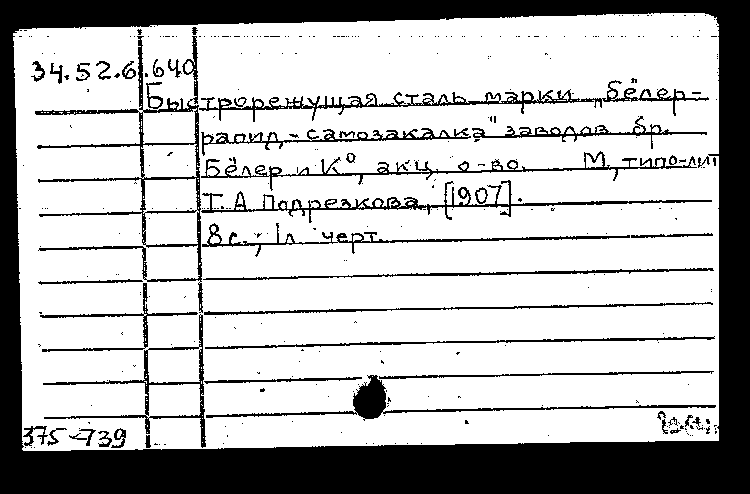 34.52.6.640
Быстрорежущая сталь марки „Бёлер-
рапид,-самозакалка" заводов бр.
Бёлер и К⁰, акц. о-во. М., типо-лит
Т. А Подрезкова, [1907].
8 с.; 1 л. черт.
375-739